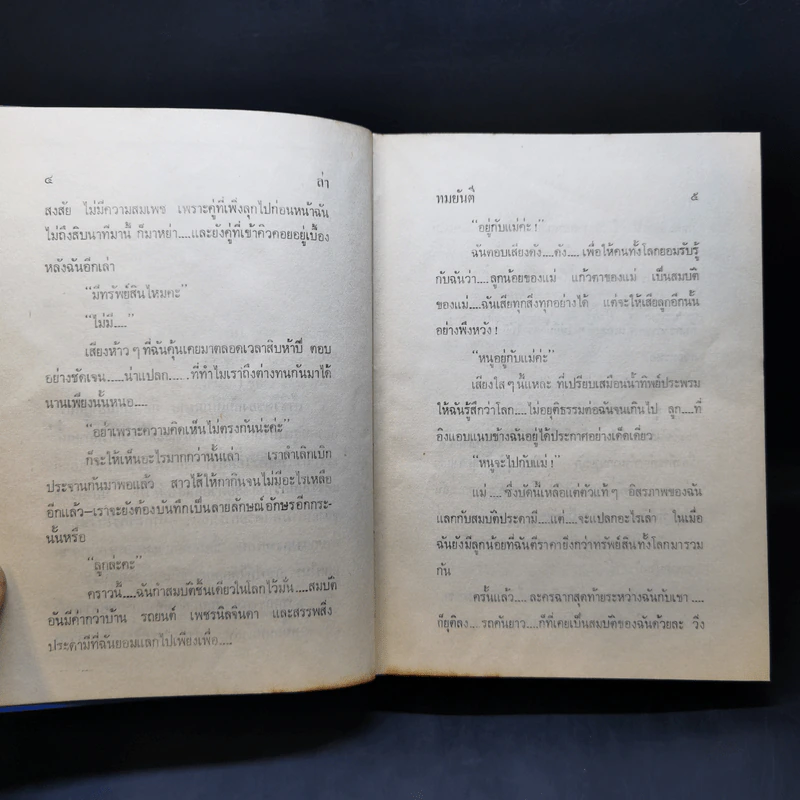 ๔ ล่า
สงสัย ไม่มีความสมเพช เพราะคู่ที่เพิ่งลุกไปก่อนหน้าฉัน
ไม่ถึงสิบนาทีมานี้ ก็มาหย่า....และยังคู่ที่เข้าคิวคอยอยู่เบื้อง
หลังฉันอีกเล่า
“มีทรัพย์สินไหมคะ”
“ไม่มี....”
เสียงห้าว ๆ ที่ฉันคุ้นเคยมาตลอดเวลาสิบห้าปี ตอบ
อย่างชัดเจน.....น่าแปลก.....ที่ทำไมเราถึงต่างทนกันมาได้
นานเพียงนั้นหนอ....
“อย่าเพราะความคิดเห็นไม่ตรงกันน่ะค่ะ”
ก็จะให้เห็นอะไรมากกว่านั้นเล่า เราลำเลิกเบิก
ประจานกันมาพอแล้ว สาวไส้ให้กากินจนไม่มีอะไรเหลือ
อีกแล้ว–เราจะยังต้องบันทึกเป็นลายลักษณ์อักษรอีกกระ-
นั้นหรือ
“ลูกล่ะคะ”
คราวนี้....ฉันกำสมบัติชิ้นเดียวในโลกไว้มั่น....สมบัติ
อันมีค่ากว่าบ้าน รถยนต์ เพชรนิลจินดา และสรรพสิ่ง
ประดามีที่ฉันยอมแลกไปเพียงเพื่อ....
ทมยันตี ๕
“อยู่กับแม่ค่ะ!”
ฉันตอบเสียงดัง....ดัง....เพื่อให้คนทั้งโลกยอมรับรู้
กับฉันว่า....ลูกน้อยของแม่ แก้วตาของแม่ เป็นสมบัติ
ของแม่....ฉันเสียทุกสิ่งทุกอย่างได้ แต่จะให้เสียลูกอีกนั้น
อย่าพึงหวัง!
“หนูอยู่กับแม่ค่ะ”
เสียงใส ๆ นี้แหละ ที่เปรียบเสมือนน้ำทิพย์ประพรม
ให้ฉันรู้สึกว่าโลก....ไม่อยุติธรรมต่อฉันจนเกินไป ลูก....ที่
อิงแอบแนบข้างฉันอยู่ได้ประกาศอย่างเด็ดเดี่ยว
“หนูจะไปกับแม่!”
แม่....ซึ่งบัดนี้เหลือแต่ตัวแท้ ๆ อิสรภาพของฉัน
แลกกับสมบัติประดามี....แต่....จะแปลกอะไรเล่า ในเมื่อ
ฉันยังมีลูกน้อยที่ฉันตีราคายิ่งกว่าทรัพย์สินทั้งโลกมารวม
กัน
ครั้นแล้ว....ละครฉากสุดท้ายระหว่างฉันกับเขา....
ก็ยุติลง....รถคันยาว....ก็ที่เคยเป็นสมบัติของฉันด้วยละ วิ่ง